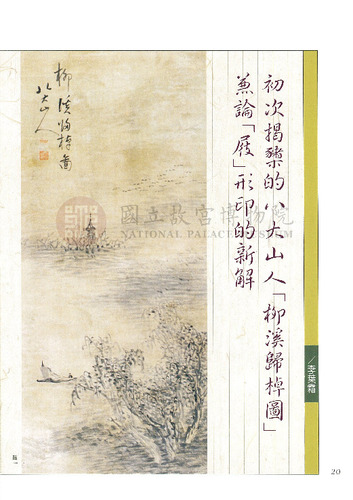 初次揭櫫的八大山人「柳溪歸棹圖」
兼論「屐」形印的新解
/李葉霜
柳溪歸棹圖
八大山人
國立故宮博物院
NATIONAL PALACE MUSEUM
圖一
20